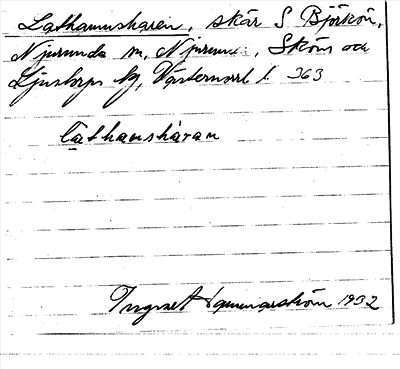 Lathamnsharen, skär S Björkön,
Njurunda sn, Njurunda, Sköns och
Ljustorps tg, Västernorrl l. 363
lathamshåran
Ingvar Hammarström 1932